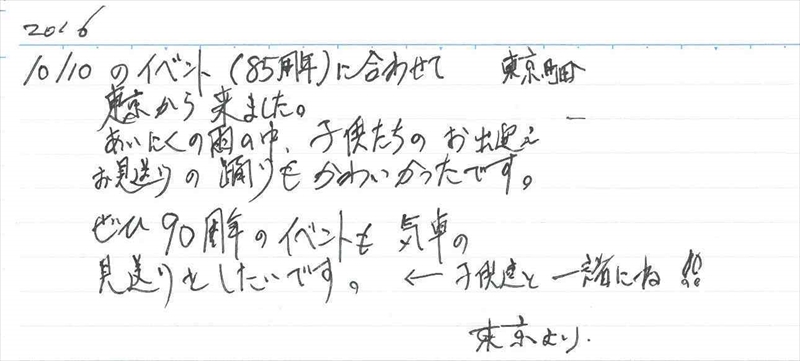 2016
10/10のイベント(85周年)に合わせて 東京町田
東京から来ました。
あいにくの雨の中、子供たちのお出迎え
お見送りの踊りもかわいかったです。
ぜひ90周年のイベントも気車の
見送りをしたいです。 ← 子供達と一緒にね!!
東京より.